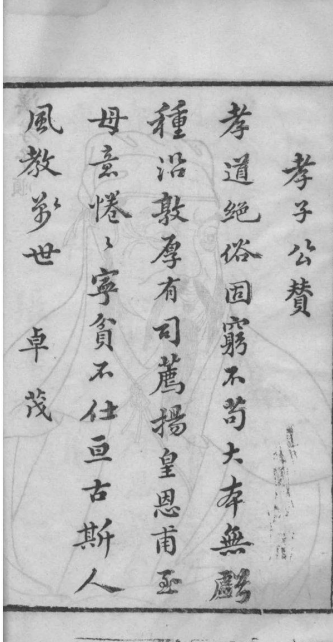 孝子公賛
孝道絶俗固窮不苟大本無虧
種沿敦厚有司薦揚皇恩甫至
母意惓〻寧貧不仕亘古斯人
風教萬世 卓茂